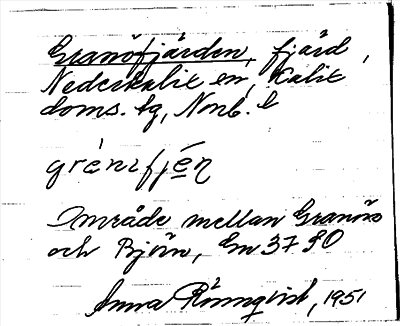 Granöfjärden, fjärd,
Nederkalix en, Kalix
doms. tg, Norrb. l
grénɪfjén
Område mellan Granön
och Björn, Em 3750
Anna Rönnqvist, 1951